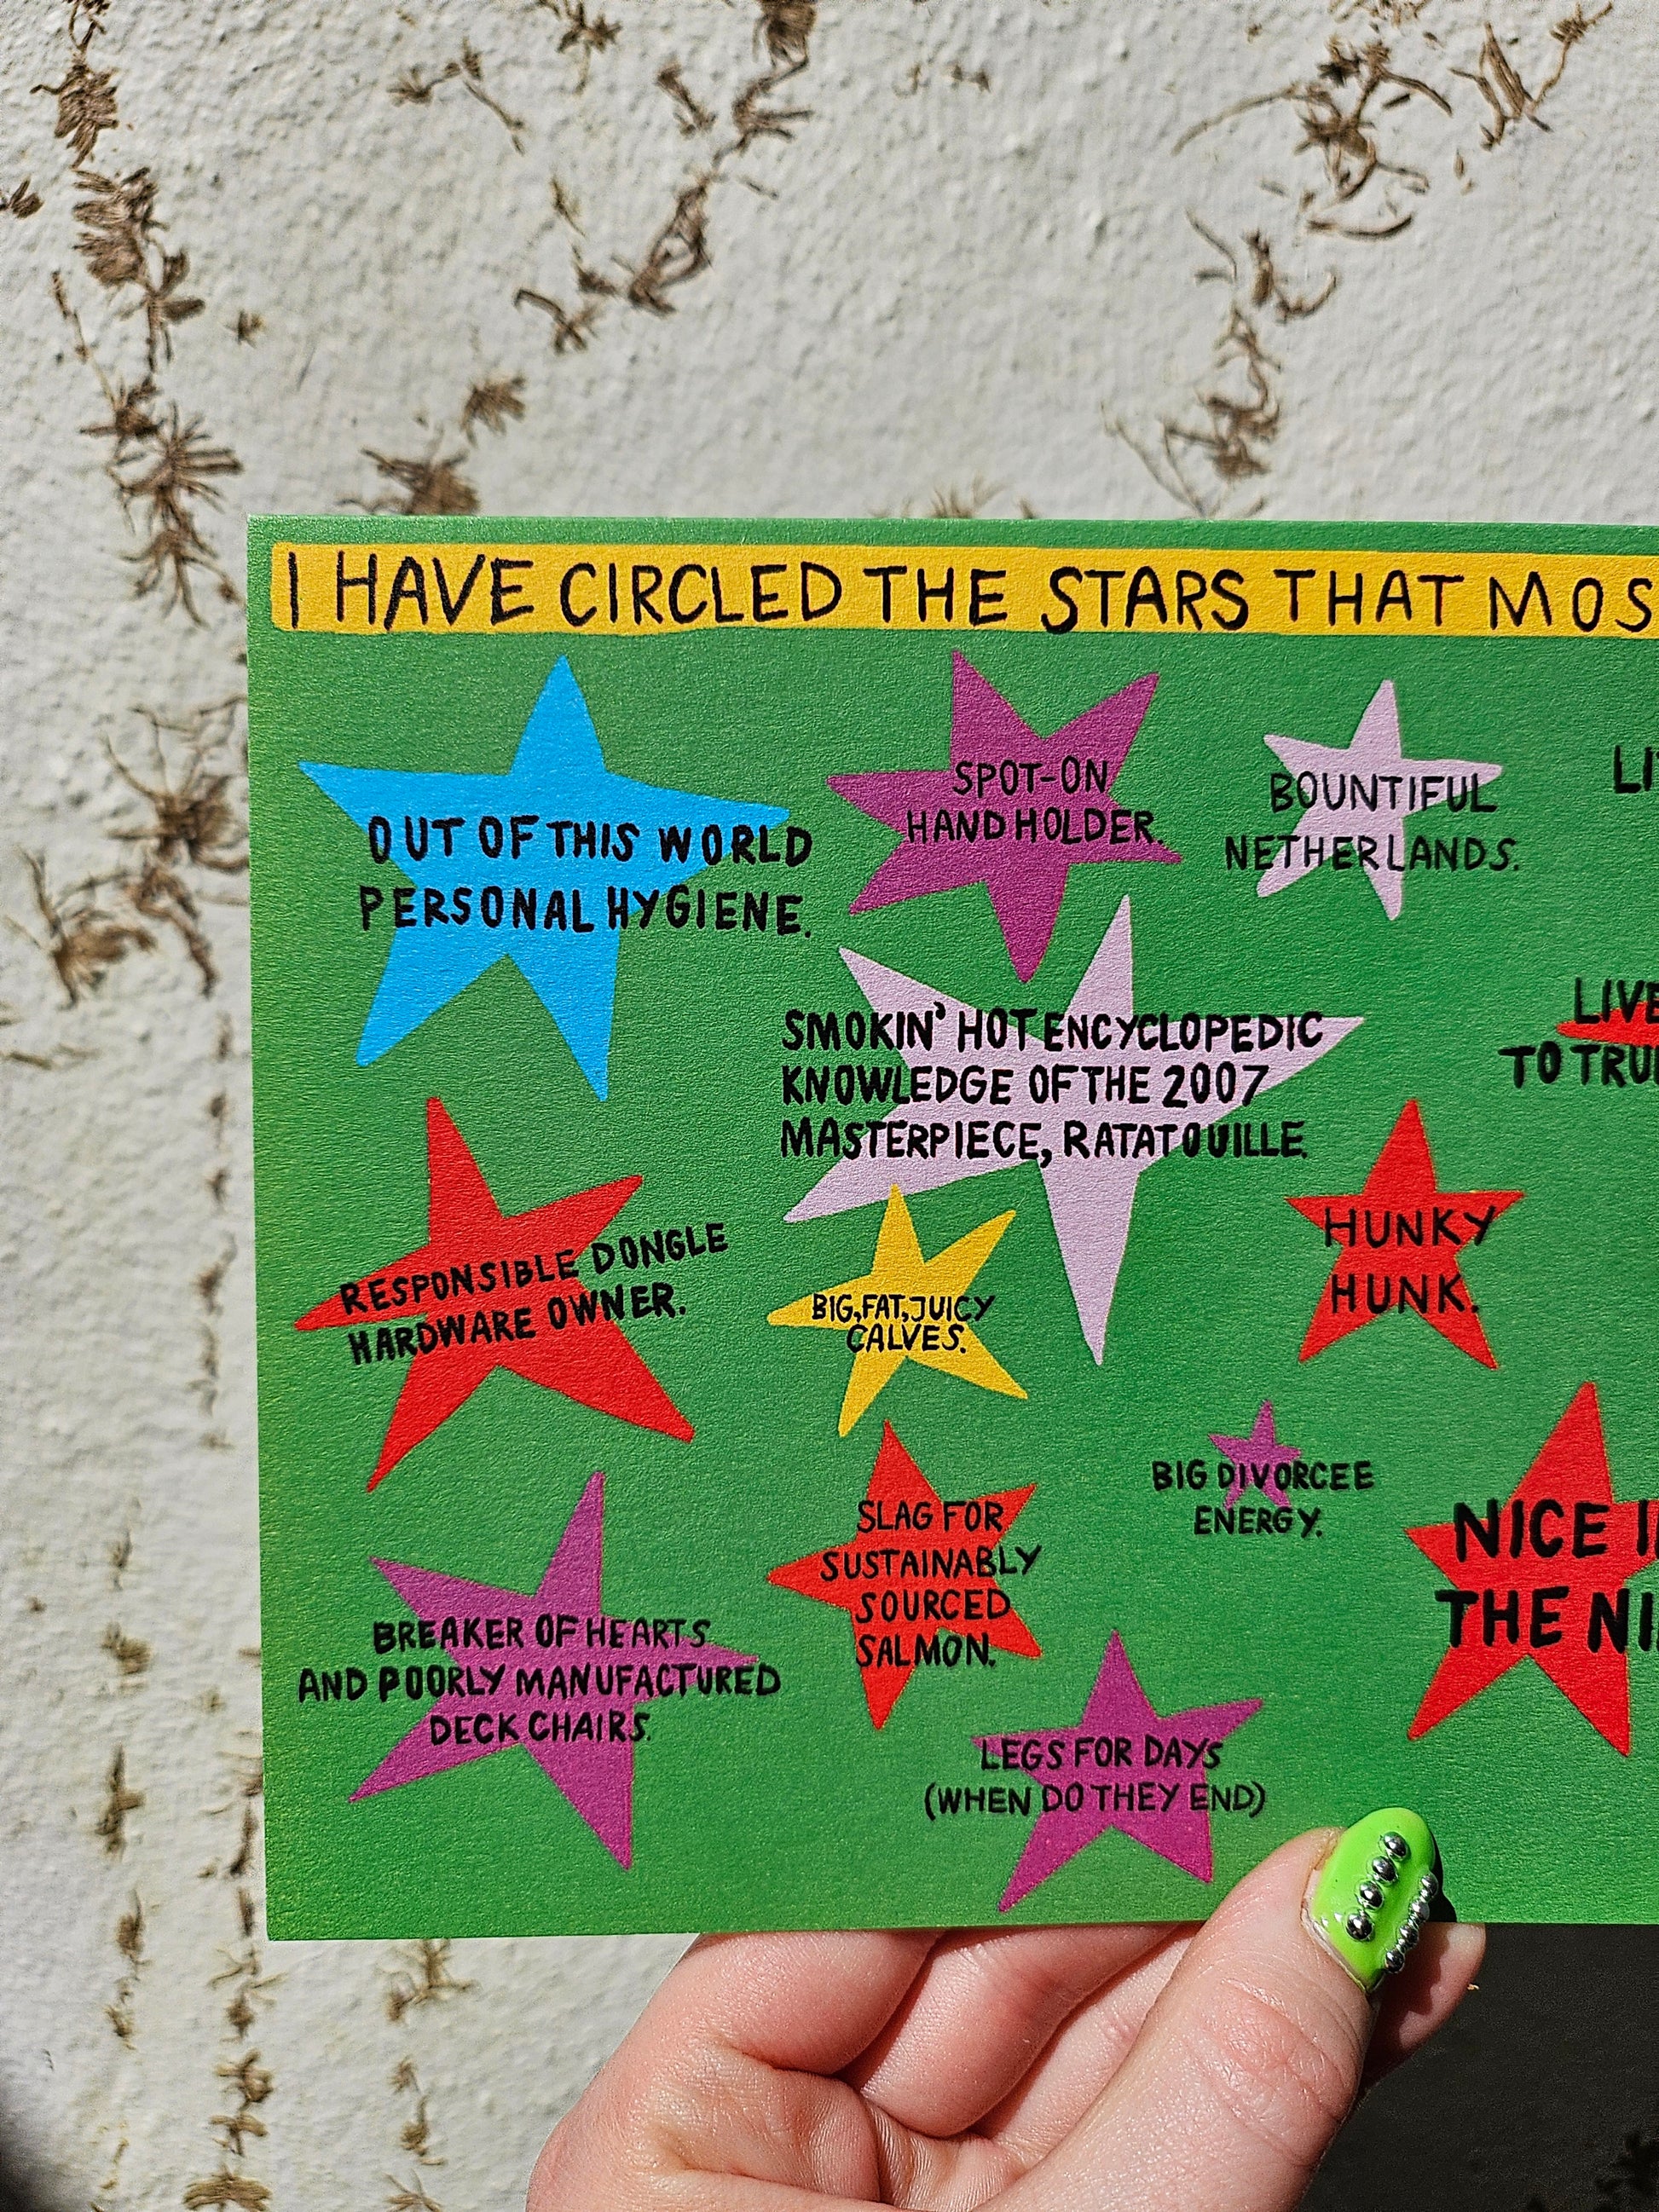 I HAVE CIRCLED THE STARS THAT
OUT OF THIS WORLD
PERSONAL HYGIENE.
SPOT-ON
HAND HOLDER.
BOUNTIFUL
NETHERLANDS.
SMOKIN' HOT ENCYCLOPEDIC
KNOWLEDGE OF THE 2007
MASTERPIECE, RATATOUILLE.
TO
RESPONSIBLE DONGLE
HARDWARE OWNER.
BIG, FAT, JUICY
CALVES.
HUNKY
HUNK.
BREAKER OF HEARTS
AND POORLY MANUFACTURED
DECK CHAIRS.
SLAG FOR
SUSTAINABLY
SOURCED
SALMON.
BIG DIVORCEE
ENERGY.
NICE
THE
LEGS FOR DAYS
(WHEN DO THEY END)